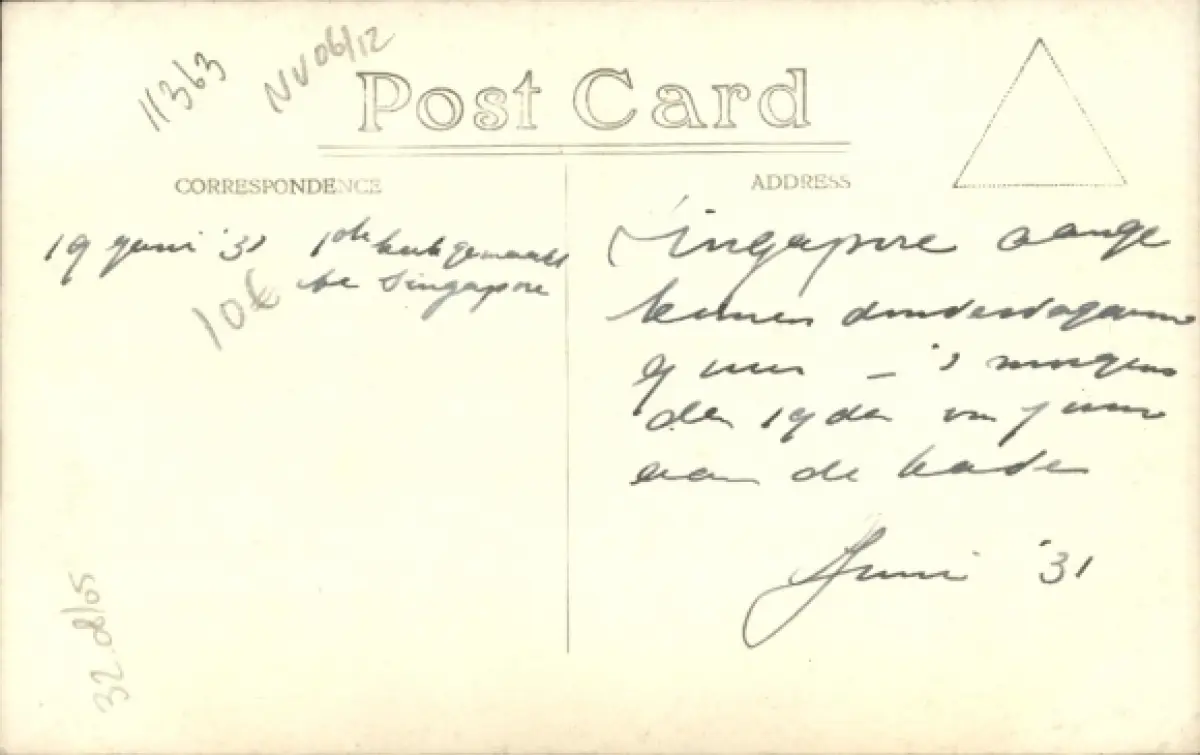 11363
NV 06/12
Post Card
CORRESPONDENCE
ADDRESS
19 juni '31 1ste
te Singapore
10€
Singapore aange
komen donderdag
9 uur - 's morgens
den 19den van Juni
aan de kade
Juni '31
32.08/05